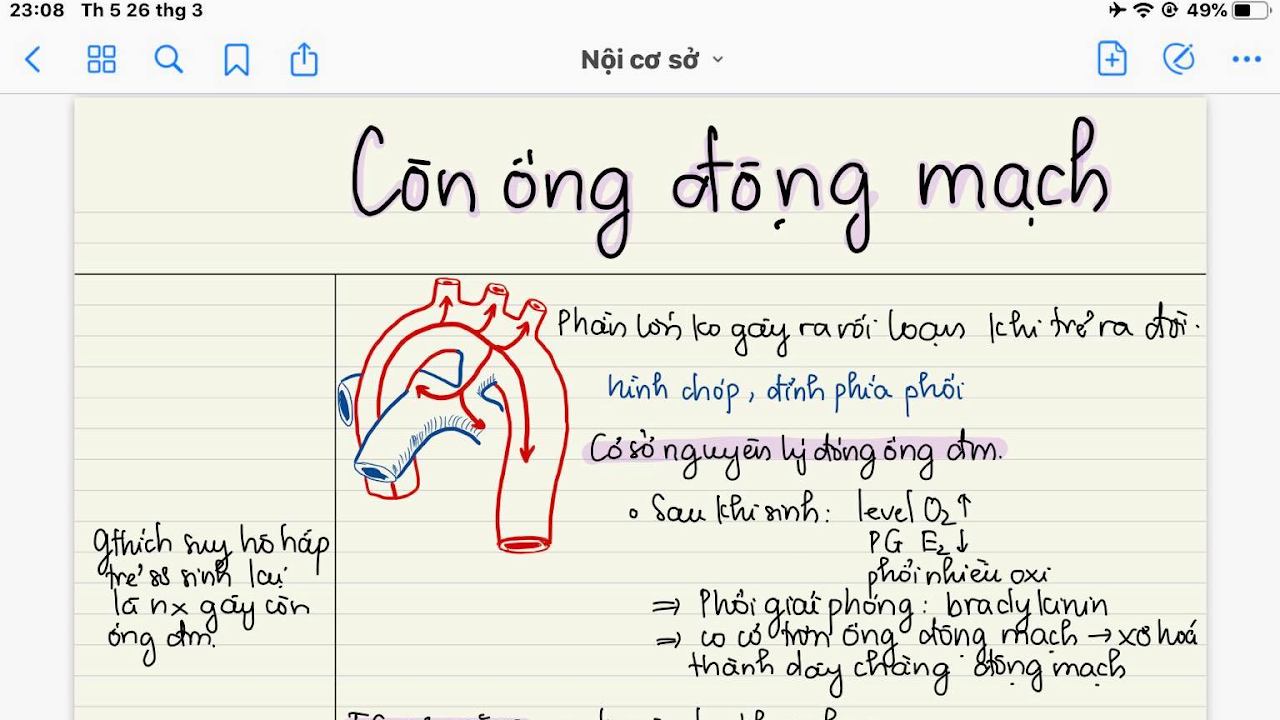 23:08 Th 5 26 thg 3
49%
Nội cơ sở
Còn ống động mạch
Phần lớn ko gây ra rối loạn khi trẻ ra đời.
hình chóp, đỉnh phía phổi
Cơ sở nguyên lý đóng ống đm.
Sau khi sinh: level O2↑
PG E2↓
phổi nhiều oxi
⇒ Phổi giải phóng: bradykinin
⇒ co cơ trơn ống động mạch → xơ hoá
thành dây chằng động mạch
gthích suy hô hấp
trẻ sơ sinh lại
là nx gây còn
ống đm.